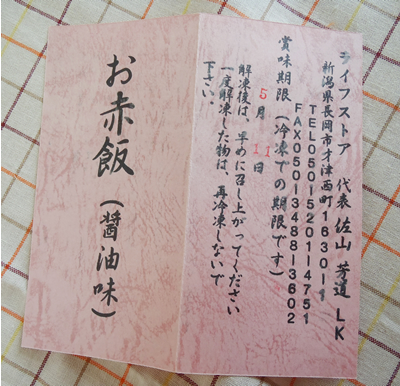 ライフストア 代表 佐山 芳道 LK
新潟県長岡市才津西町1630-1
TEL050-5201-4751
FAX050-3488-3602
賞味期限(冷凍での期限です)
5月11日
解凍後は、早めに召し上がってください
一度解凍した物は、再冷凍しないで
下さい。
お赤飯(醤油味)